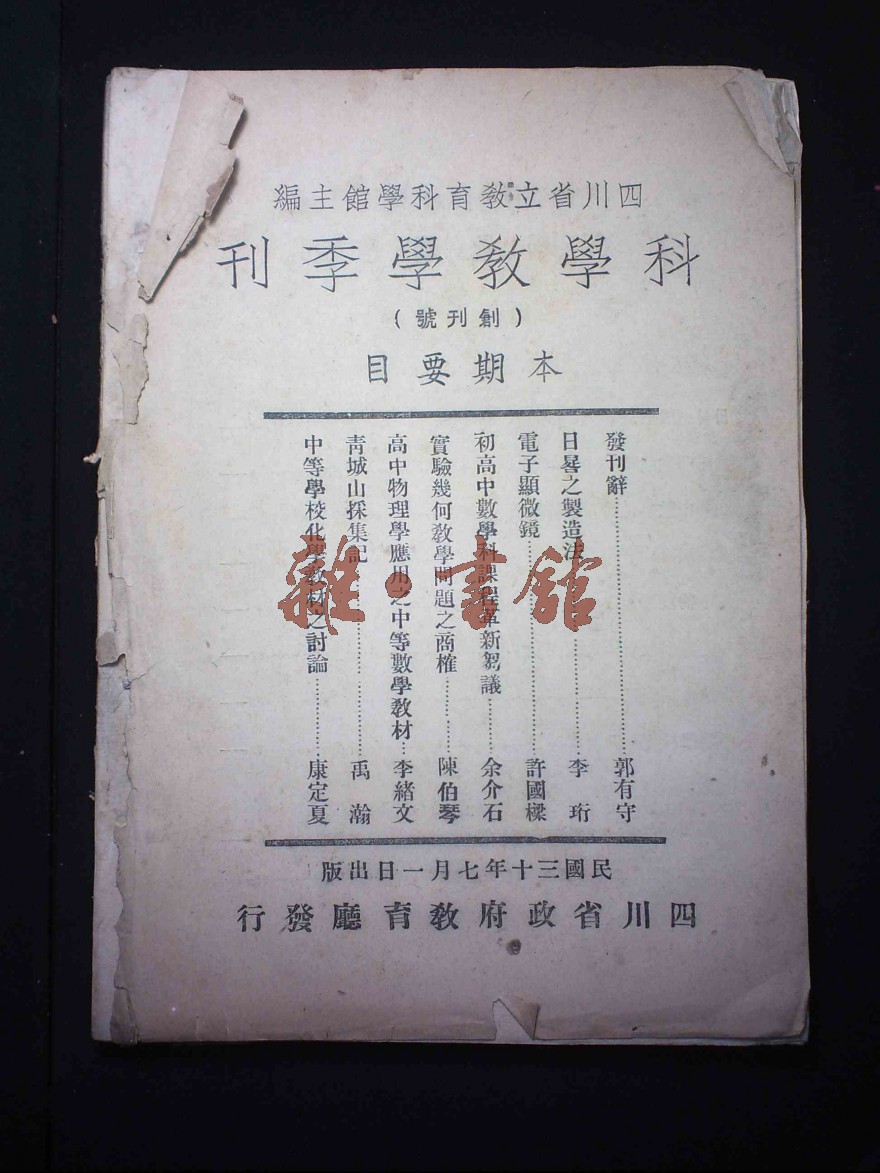 四川省立教育科學館主編
科學教學季刊
(創刊號)
本期要目
發刊辭……郭有守
日晷之製造法……李珩
電子顯微鏡……許國樑
初高中數學科課程革新芻議……余介石
實驗幾何教學問題之商榷……陳伯琴
高中物理學應用之中等數學教材…李緒文
青城山採集記……禹瀚
中等學校化學教材之討論……康定夏
民國三十年七月一日出版
四川省政府教育廳發行
雜·書館